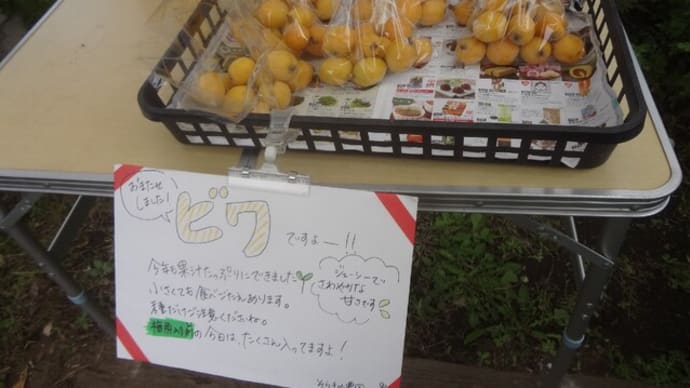 おまたせ
しました!
ビワ
ですよー!!
今年も果汁たっぷりにできました
小さくても食べごたえあります。
種だけご注意くださいね。
梅雨入り前の今日は、たくさん入ってますよ!
ジューシーで
さわやかな
甘さです